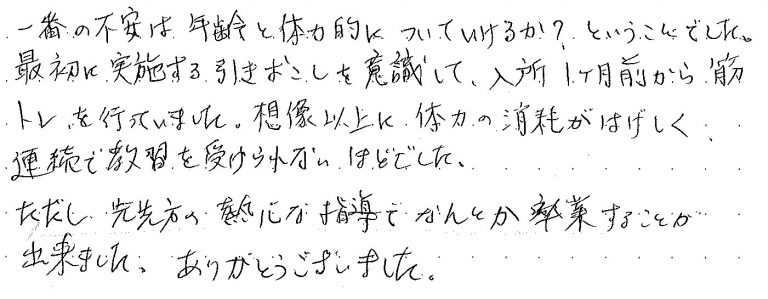 一番の不安は年齢と体力的についていけるか？ということでした。
最初に実施する引きおこしを意識して、入所1ヶ月前から筋
トレを行っていました。想像以上に体力の消耗がはげしく、
連続で教習を受けられないほどでした。
ただし先生方の熱心な指導でなんとか卒業することが
出来ました。ありがとうございました。